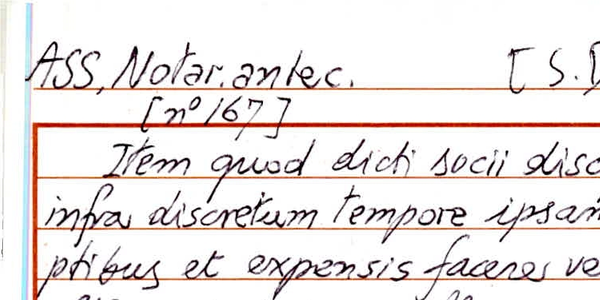 ASS, Notar. antec. [ S.
[nº 167]
Item quod dicti socii disc
infra discretum tempore ipsan
ptibus et expensis faceres ve